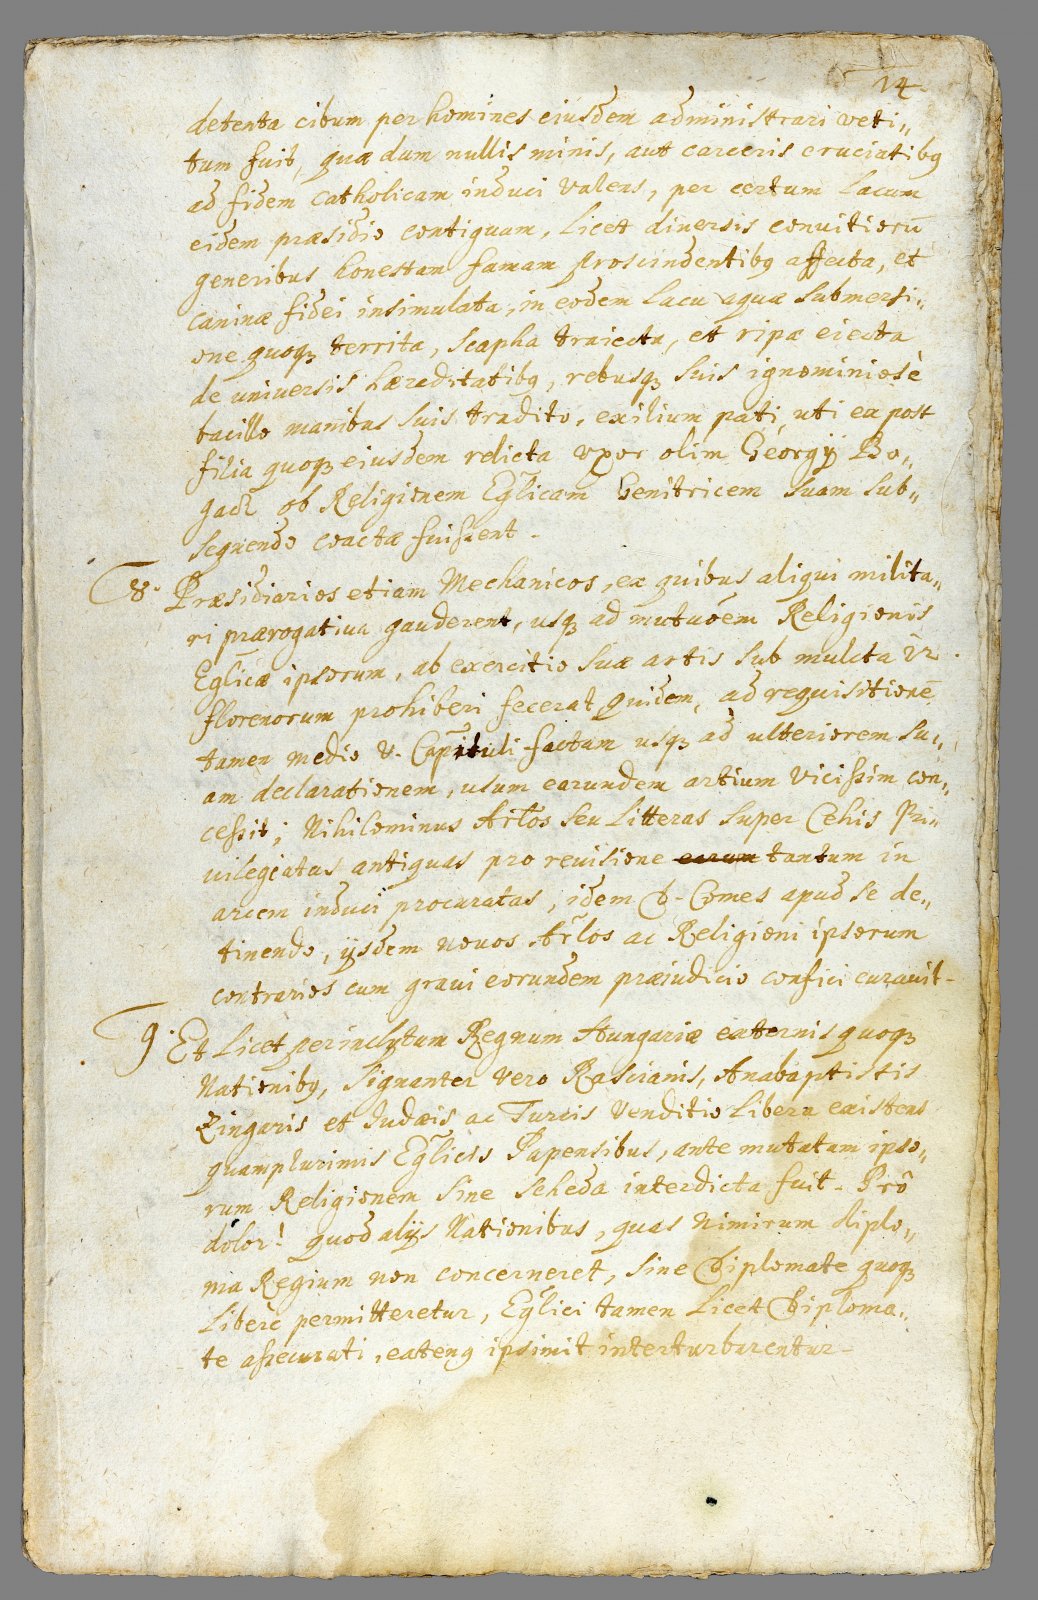 14
detenta cibum per homines eiusdem administrari veti„
tum fuit, quæ dum nullis minis, aut carceris cruciatibꝫ
ad fidem catholicam induci valens, per certum Lacum
eidem præsidio contiguum, Licet diuersis conuitiorū
generibus honestam famam proscindentibꝫ affecta, et
caninæ fidei insimulata, in eodem Lacu aquæ submersi„
one quoqꝫ territa, scapha traiecta, et ripæ eiecta
de uniuersis hæreditatibꝫ, rebusqꝫ suis ignominiosè
bacillo manibus suis tradito, exilium pati, uti ex post
filia quoqꝫ eiusdem relicta vxor olim Georgÿ Bo„
gadi ob Religionem Eğlicam Genitricem suam sub„
sequendo coactæ fuissent.
8. Præsidiarios etiam Mechanicos, ex quibus aliqui milita„
ri prærogatiua gauderent, usqꝫ ad mutuõem Religionis
Eğlicæ ipsorum, ab exercitio suæ artis sub mulcta 12.
florenorum prohiberi fecerat quidem, ad requisitionē
tamen medio V. Capituli factam usqꝫ ad ulteriorem su„
am declarationem, usum earundem artium vicissim con„
cessit; Nihilominus Arlos seu Litteras super Cehis Pri„
uilegiatas antiquas pro reuisione earum tantum in
arcem induci procuratas, idem D. Comes apud se de„
tinendo, ijsdem nouos Arlos ac Religioni ipsorum
contrarios cum graui eorundem præiudicio confici curauit.
9. Et Licet per inclytum Regnum Hungariæ externis quoqꝫ
Nationibꝫ, signanter vero Rascianis, Anabaptistis
Zingaris et Judæis ac Turcis venditio Libera existens
quamplurimis Eğlicis Papensibus, ante mutatam ipso„
rum Religionem sine scheda interdicta fuit. Prô
dolor! quod alijs Nationibus, quas nimirum diplo„
ma Regium non concerneret, sine Diplomate quoqꝫ
Liberè permitteretur, Eğlici tamen Licet Diploma„
te assecurati, eatenꝫ ipsimet interturbarentur.